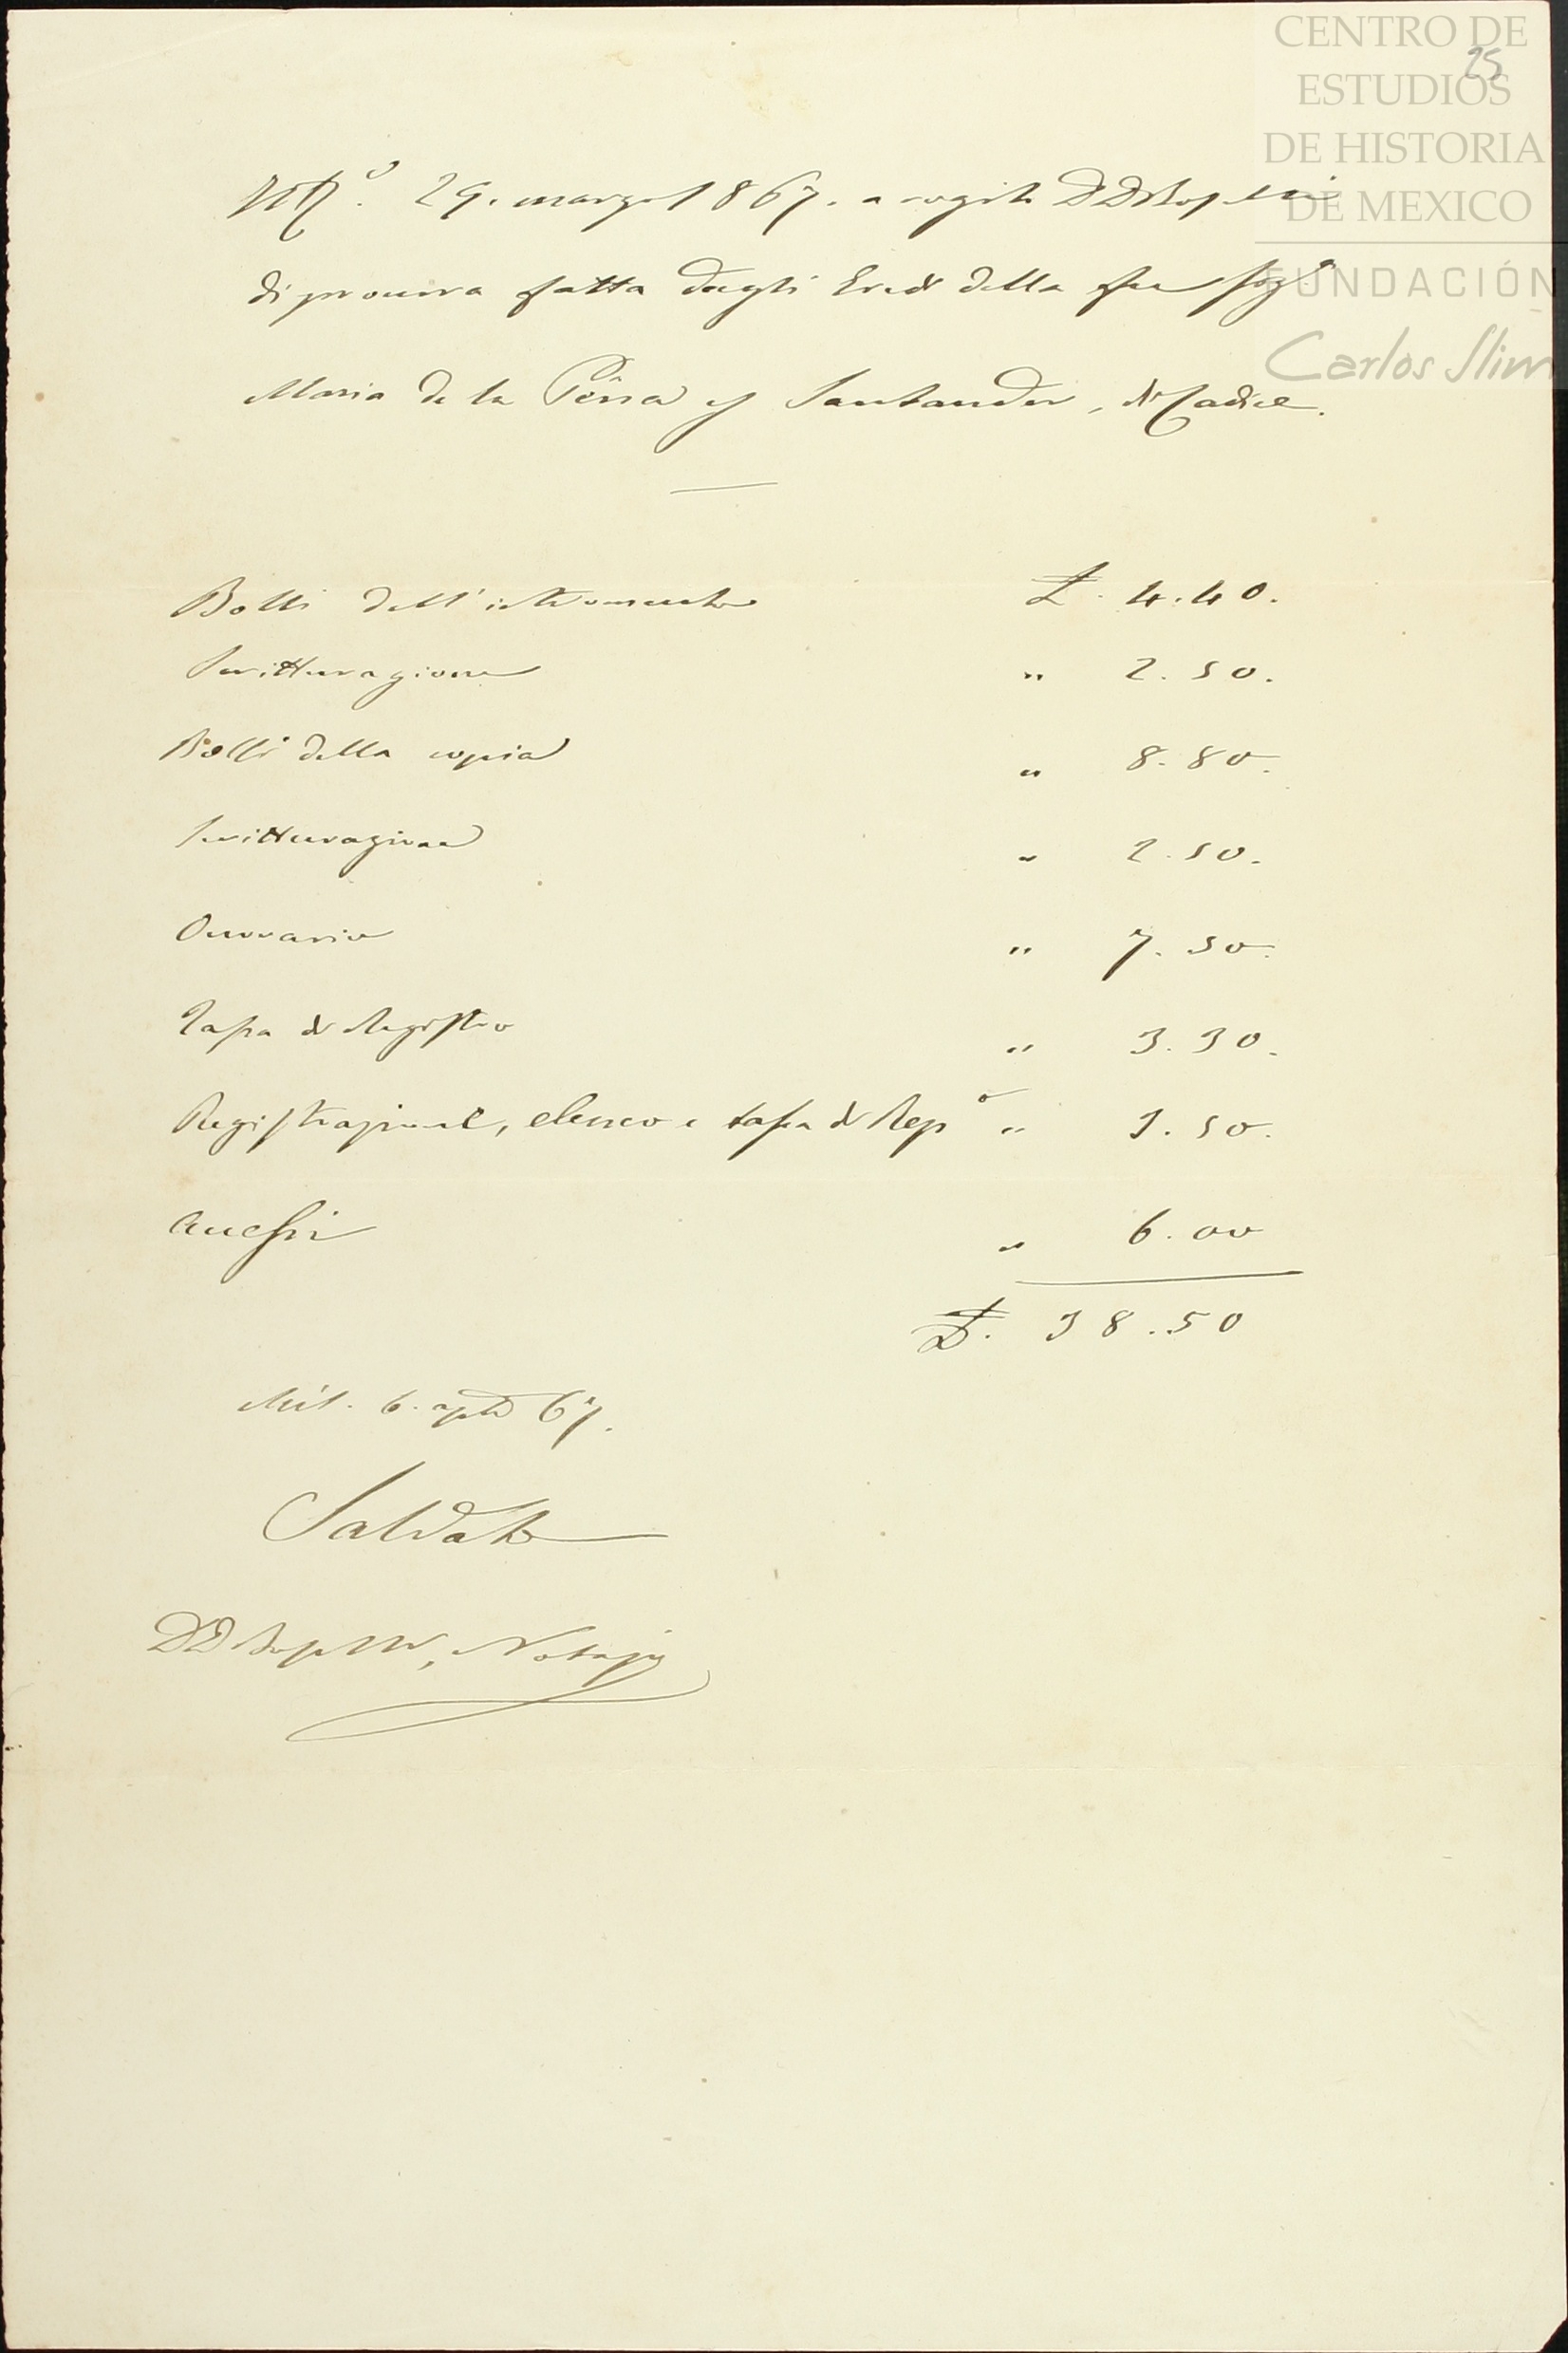 CENTRO DE
ESTUDIOS
DE HISTORIA
DE MEXICO
FUNDACIÓN
Carlos Slim
25
29. marzo 1867. a rogito
di procura fatta dagli Eredi della fu Sig.ª
Maria de la Pêna y Santander, di Cadice.
Bolli dell'istromento £. 4.40.
Scritturazione " 2.50.
Bolli della copia " 8.80.
Scritturazione " 2.50.
Onorario " 7.50.
Tassa di Registro " 3.30.
Registrazione, elenco e tassa di Rep.º " 3.50.
Annessi " 6.00
£. 38.50
Mil. 6. aprile 67.
Saldato
Notajo